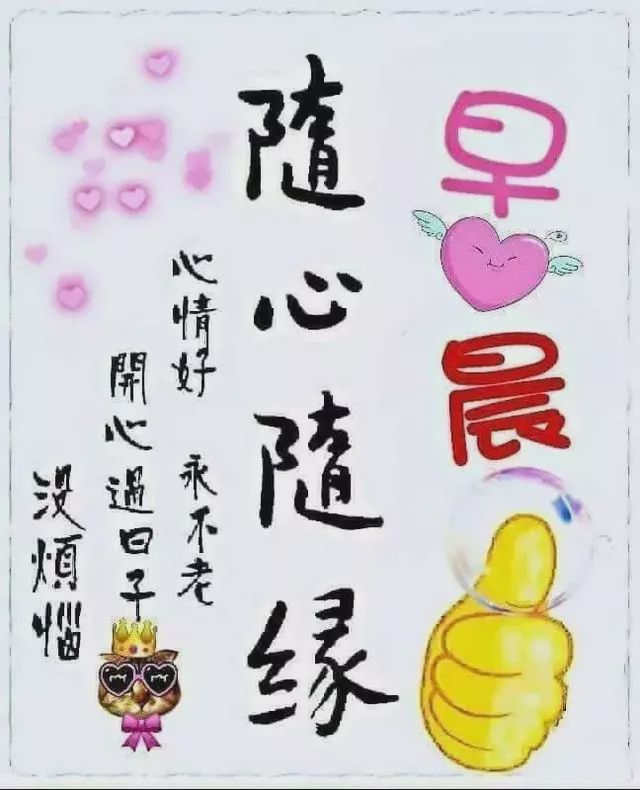 早晨
隨心隨缘
心情好 永不老
開心過日子
沒煩惱